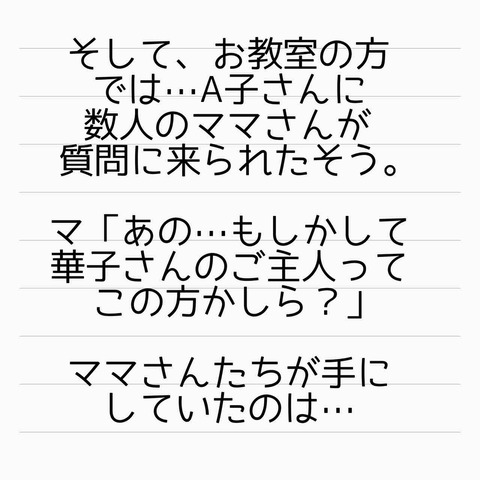 そして、お教室の方
では…A子さんに
数人のママさんが
質問に来られたそう。
マ「あの…もしかして
華子さんのご主人って
この方かしら？」
ママさんたちが手に
していたのは…